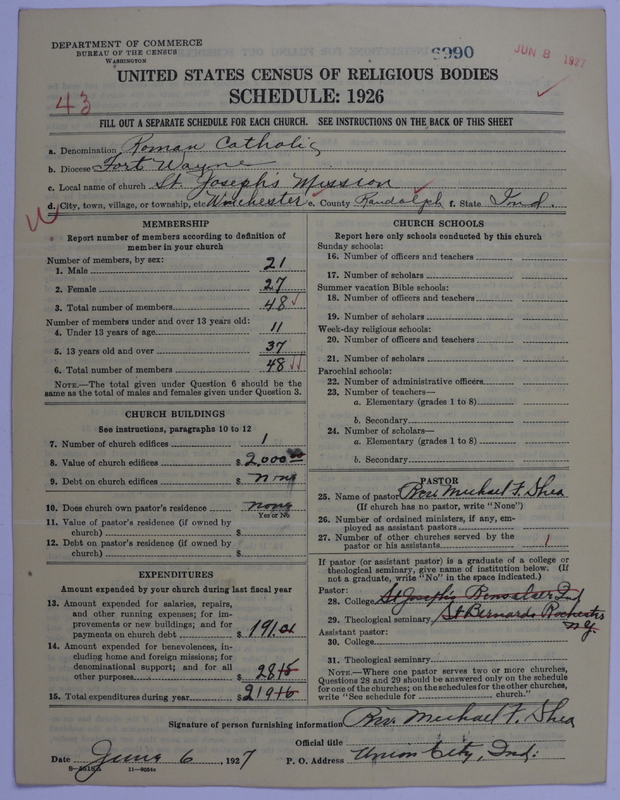 DEPARTMENT OF COMMERCE
BUREAU OF THE CENSUS
WASHINGTON
JUN 8 1927
UNITED STATES CENSUS OF RELIGIOUS BODIES
SCHEDULE: 1926
43
FILL OUT A SEPARATE SCHEDULE FOR EACH CHURCH. SEE INSTRUCTIONS ON THE BACK OF THIS SHEET
a. Denomination Roman Catholic
b. Diocese Fort Wayne
c. Local name of church St. Joseph's Mission
d. City, town, village, or township, etc Winchester e. County Randolph f. State Ind.
MEMBERSHIP
Report number of members according to definition of
member in your church
Number of members, by sex:
1. Male 21
2. Female 27
3. Total number of members 48
Number of members under and over 13 years old:
4. Under 13 years of age 11
5. 13 years old and over 37
6. Total number of members 48
NOTE.—The total given under Question 6 should be the
same as the total of males and females given under Question 3.
CHURCH BUILDINGS
See instructions, paragraphs 10 to 12
7. Number of church edifices 1
8. Value of church edifices $ 2,000
9. Debt on church edifices $ none
10. Does church own pastor's residence none
Yes or No
11. Value of pastor's residence (if owned by
church) $
12. Debt on pastor's residence (if owned by
church) $
EXPENDITURES
Amount expended by your church during last fiscal year
13. Amount expended for salaries, repairs,
and other running expenses; for im-
provements or new buildings; and for
payments on church debt $ 191.01
14. Amount expended for benevolences, in-
cluding home and foreign missions; for
denominational support; and for all
other purposes $ 2845
15. Total expenditures during year $ 21946
CHURCH SCHOOLS
Report here only schools conducted by this church
Sunday schools:
16. Number of officers and teachers
17. Number of scholars
Summer vacation Bible schools:
18. Number of officers and teachers
19. Number of scholars
Week-day religious schools:
20. Number of officers and teachers
21. Number of scholars
Parochial schools:
22. Number of administrative officers
23. Number of teachers—
a. Elementary (grades 1 to 8)
b. Secondary
24. Number of scholars—
a. Elementary (grades 1 to 8)
b. Secondary
PASTOR
25. Name of pastor Rev. Michael F. Shea
(If church has no pastor, write "None")
26. Number of ordained ministers, if any, em-
ployed as assistant pastors
27. Number of other churches served by the
pastor or his assistants 1
If pastor (or assistant pastor) is a graduate of a college or
theological seminary, give name of institution below. (If
not a graduate, write "No" in the space indicated.)
Pastor:
28. College St Joseph's Rensselaer Ind
29. Theological seminary St Bernards Rochester
N.Y.
Assistant pastor:
30. College
31. Theological seminary
NOTE.—Where one pastor serves two or more churches,
Questions 28 and 29 should be answered only on the schedule
for one of the churches; on the schedules for the other churches,
write "See schedule for church."
Signature of person furnishing information Rev. Michael F. Shea
Official title
Date June 6, 1927 P. O. Address Union City, Ind.